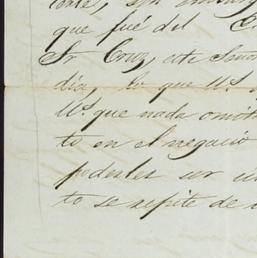 que fué del
Sr Cruz, este Señor
día, lo que U. s.
U. s. que nada omit
to en el negocio
poderles ser
to se repite de